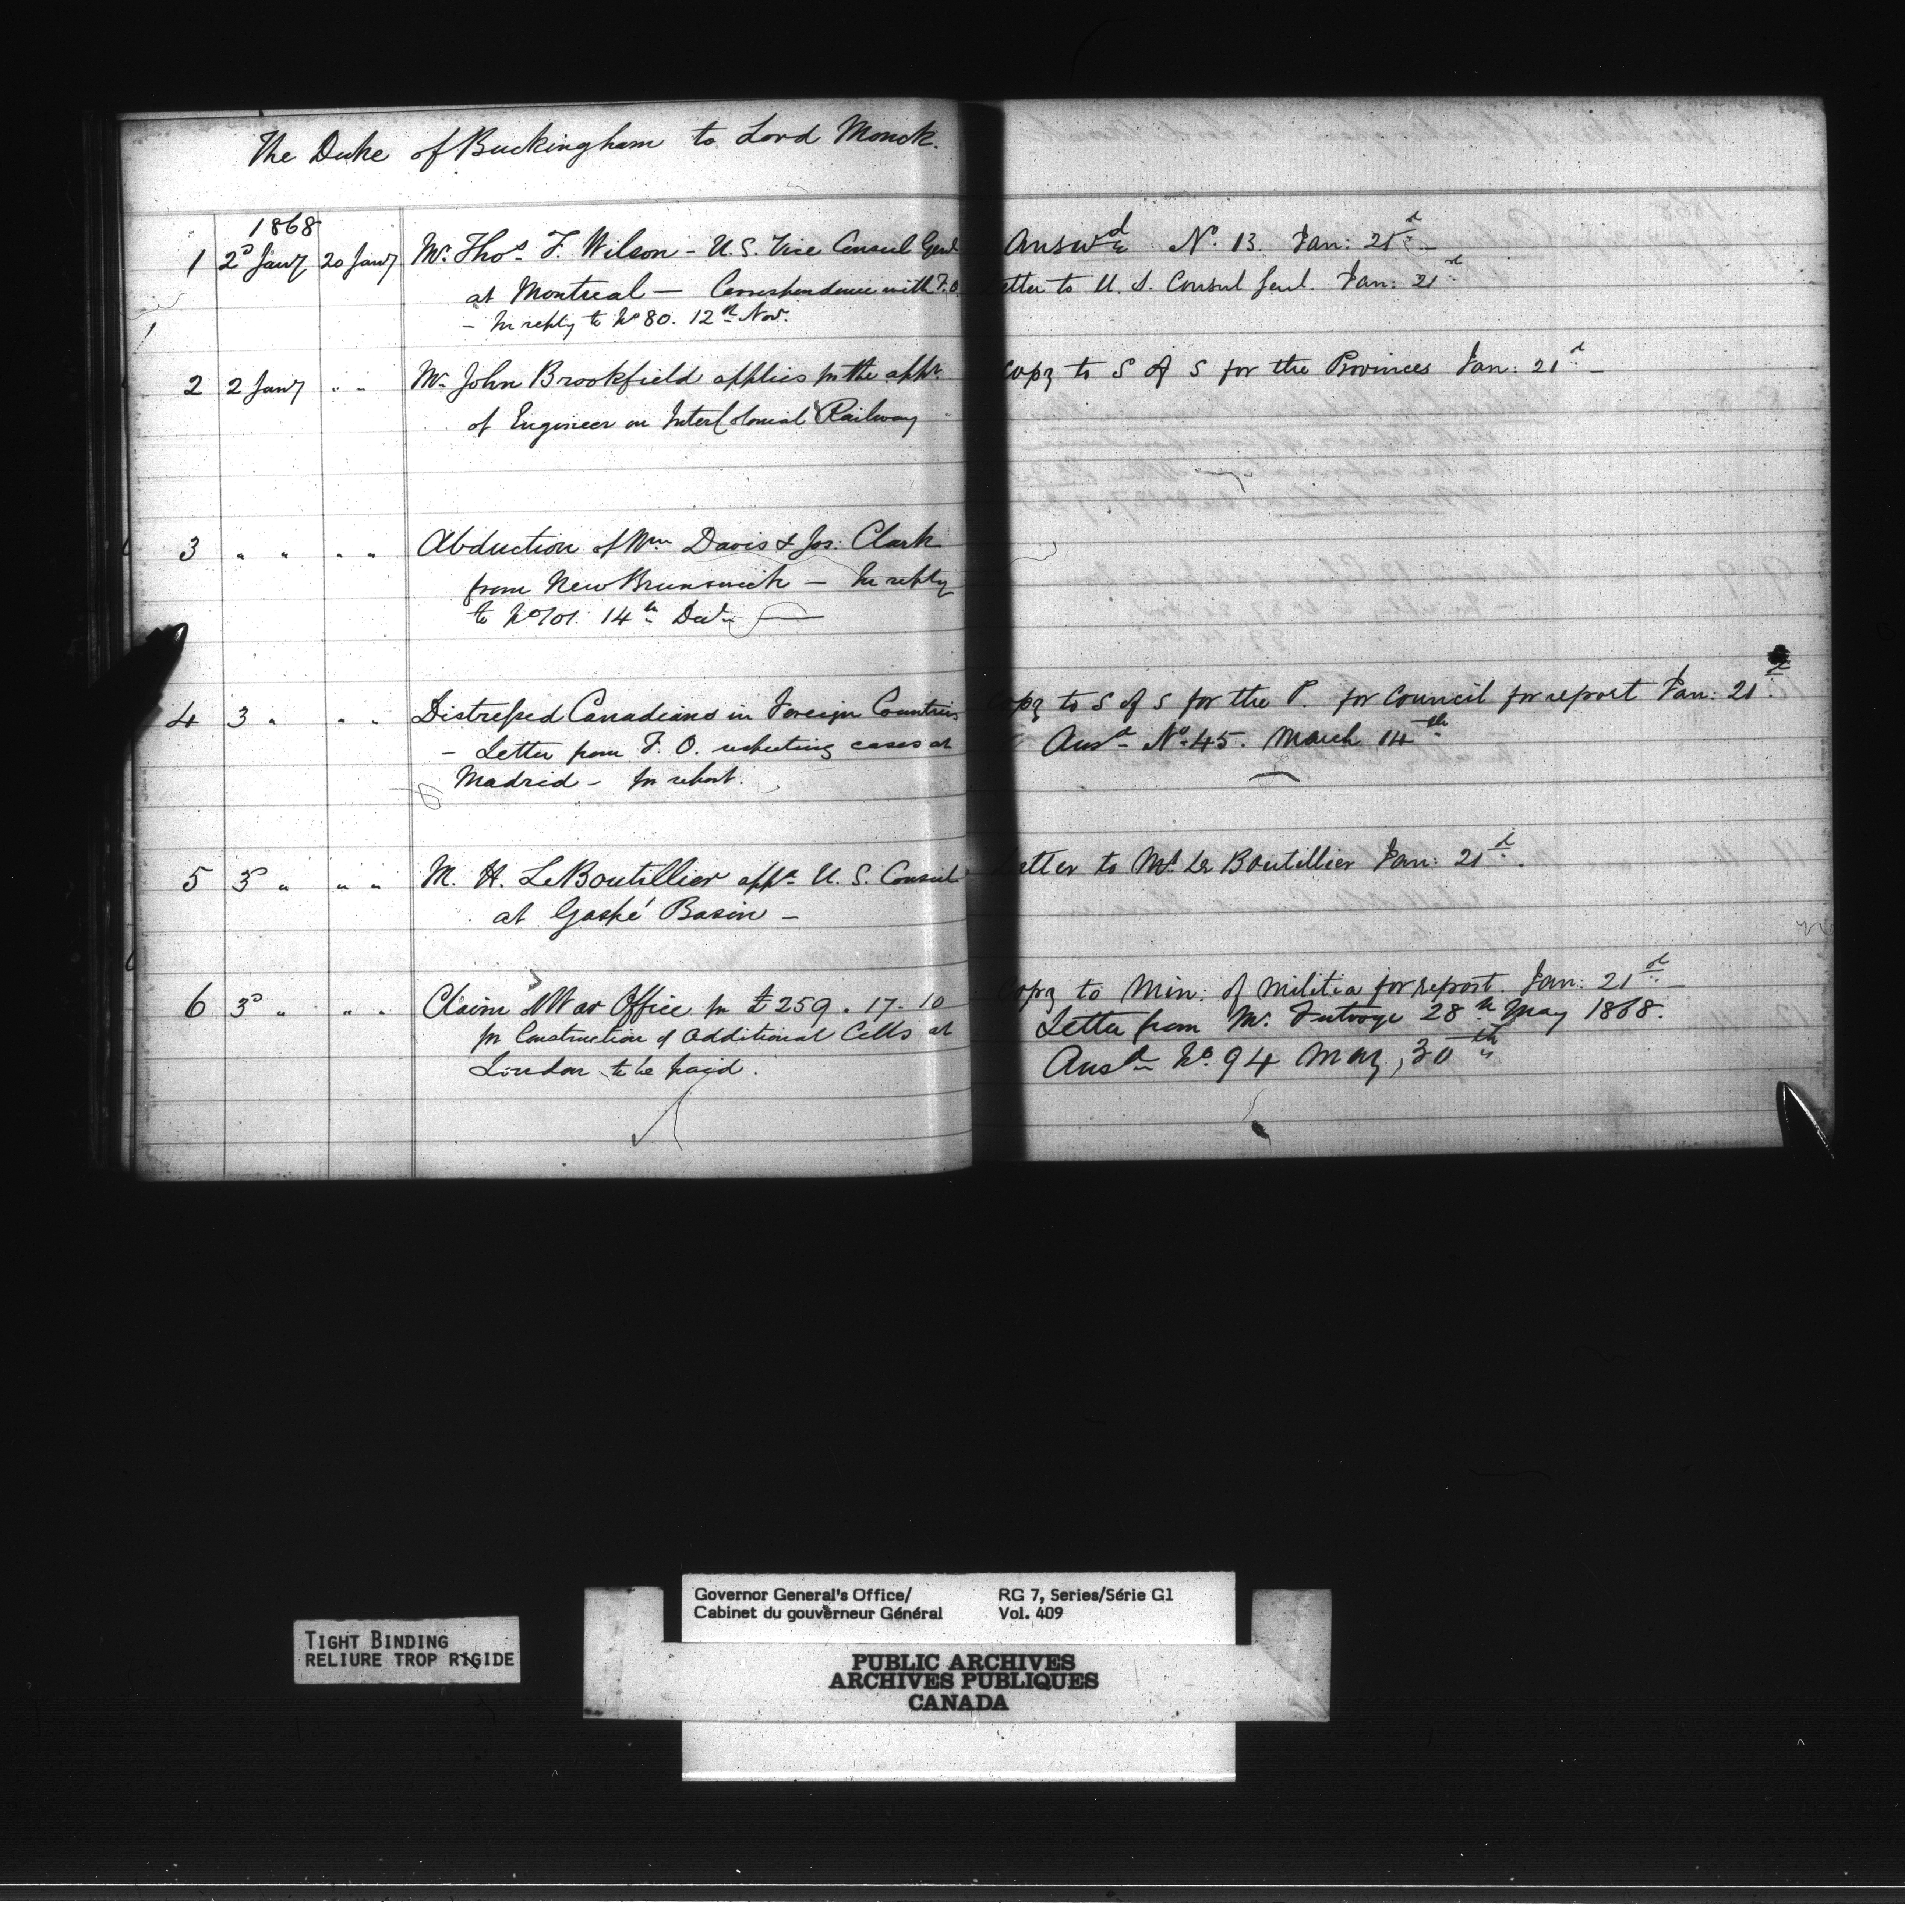 The Duke of Buckingham to Lord Monck.
1868
1 2d Jany 20 Jany Mr. Thos. F. Wilson - U.S. Vice Consul Genl
at Montreal — Correspondence with F.O.
- In reply to No 80. 12th Nov.
Answd No. 13. Jan: 21st -
Letter to U. S. Consul Genl. Jan: 21st
2 2 Jany " " Mr. John Brookfield applies for the appt.
of Engineer on InterColonial Railway -
Copy to S of S for the Provinces Jan: 21st -
3 " " " " Abduction of Wm Davis & Jos: Clark
from New Brunswick — In reply
to No 101. 14th Decr
4 3 " " " Distressed Canadians in Foreign Countries
- Letter from F. O. respecting cases at
Madrid - for report.
Copy to S of S for the P. for Council for report Jan: 21st
Ansd No. 45. March 14th
5 3d " " " M. H. LeBoutillier appd U. S. Consul
at Gaspé Basin -
Letter to Mr. Le Boutillier Jan: 21st.
6 3d " " " Claim of War Office for £259. 17. 10
for Construction of additional Cells at
London to be paid.
Copy to Min: of Militia for report. Jan: 21st -
Letter from Mr. Futvoye 28th May 1868.
Ansd No. 94 May, 30th
TIGHT BINDING
RELIURE TROP RIGIDE
Governor General's Office/
Cabinet du gouverneur Général
RG 7, Series/Série G1
Vol. 409
PUBLIC ARCHIVES
ARCHIVES PUBLIQUES
CANADA